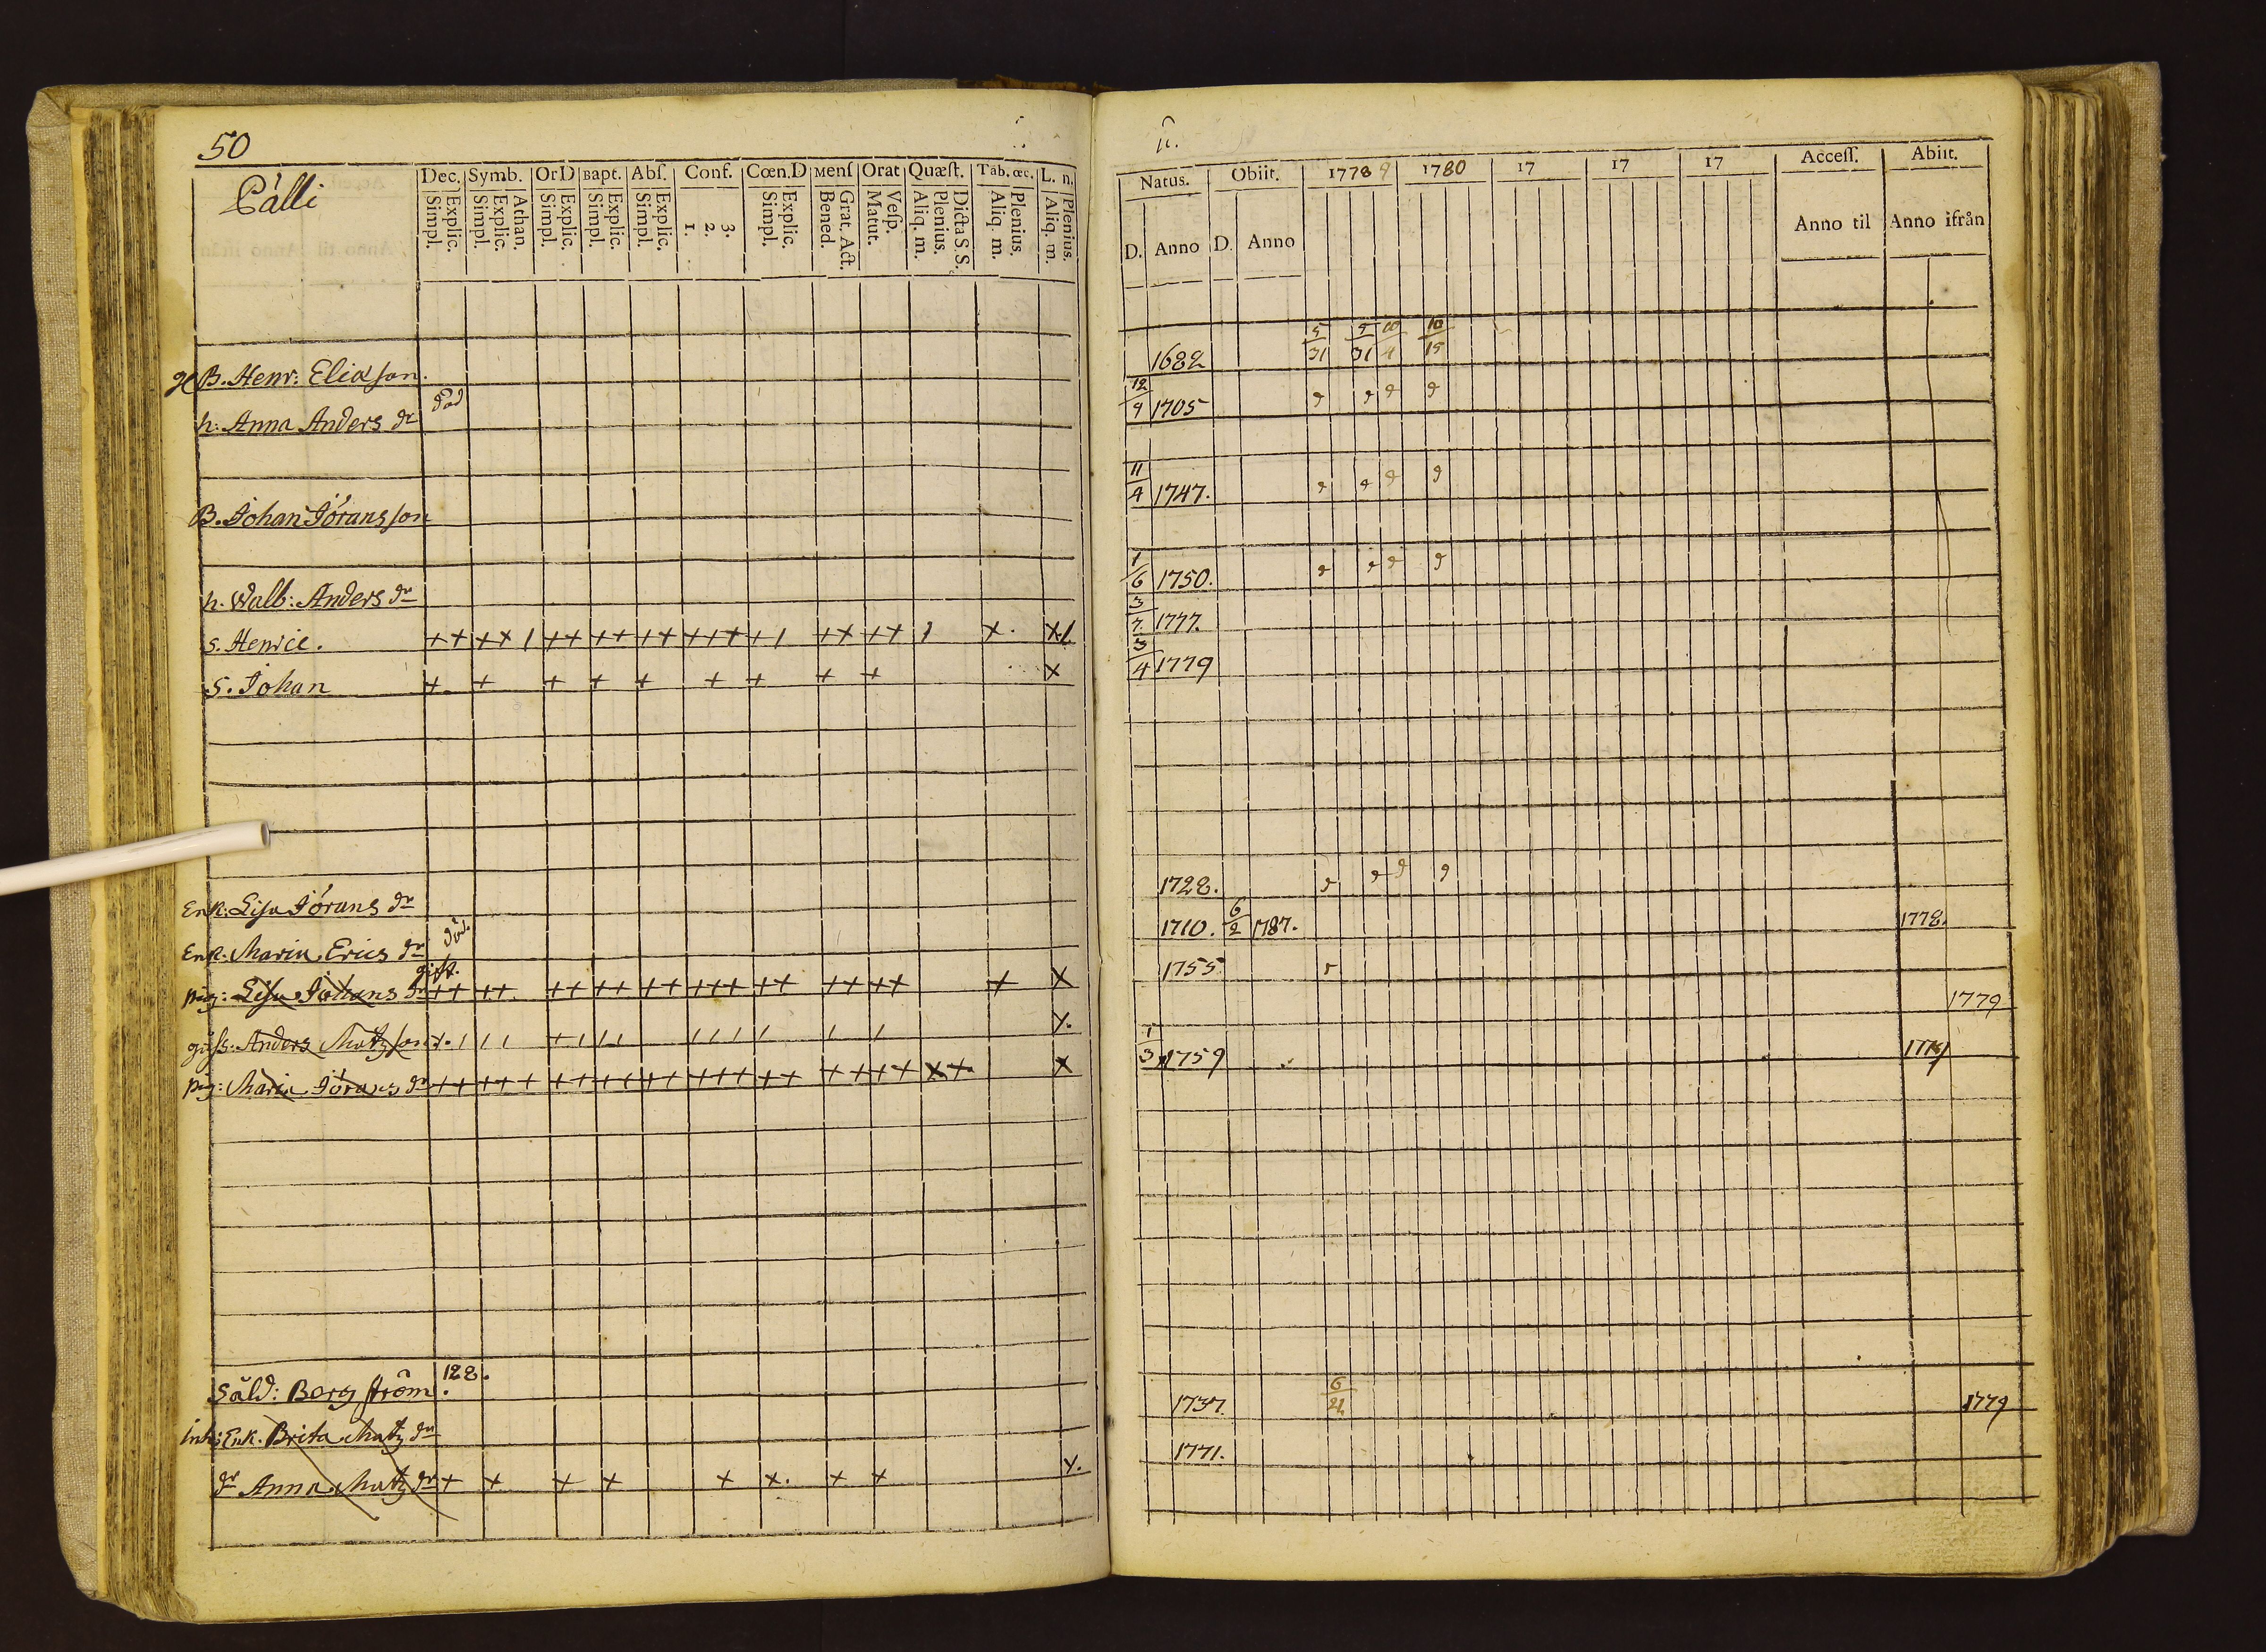 50
Pålli
Dec. Symb. OrD Bapt. Abs. Conf. Cœn.D Menſ Orat Quæſt. Tab. œc. L. n.
Explic. Simpl. Athan. Explic. Simpl. Explic. Simpl. Explic. Simpl. Explic. Simpl. 3. 2. 1. Explic. Simpl. Grat. Act. Bened. Veſp. Matut. Dicta S.S. Plenius. Aliq. m. Plenius. Aliq. m. Plenius. Aliq. m.
B. Henr: Elia son.
h: Anna Anders dr död
B. Johan Jörans son
h. Walb: Anders dr
S. Henric.
S. Johan
Enk: Lisa Jörans dr
Enk. Maria Erics dr död.
pig: Lisa Johans dr gift.
Anders Matz son
pig: Maria Jörans dr
Såld: Bergström. 128.
Inh: Enk. Brita Matz dr
dr Anna Matz dr
Natus. Obiit. 1778 9 1780 17 17 17 Acceſſ. Abiit.
D. Anno D. Anno Anno til Anno ifrån
5/31 5/31 10/15
1682
12/9 1705
11/4 1747.
1/6 1750.
3/7 1777.
3/4 1779
1728.
1710. 6/2 1787. 1778.
1755.
1779
1/3 1759
1737. 6/21 1779
1771.